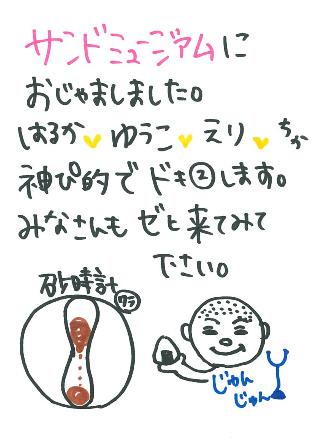 サンドミュージアムに
おじゃましました。
はるか ゆうこ えり ちか
神ぴ的で ドキ②します。
みなさんも ゼヒ来てみて
下さい。
砂時計
ワラ
じゅん
じゅん